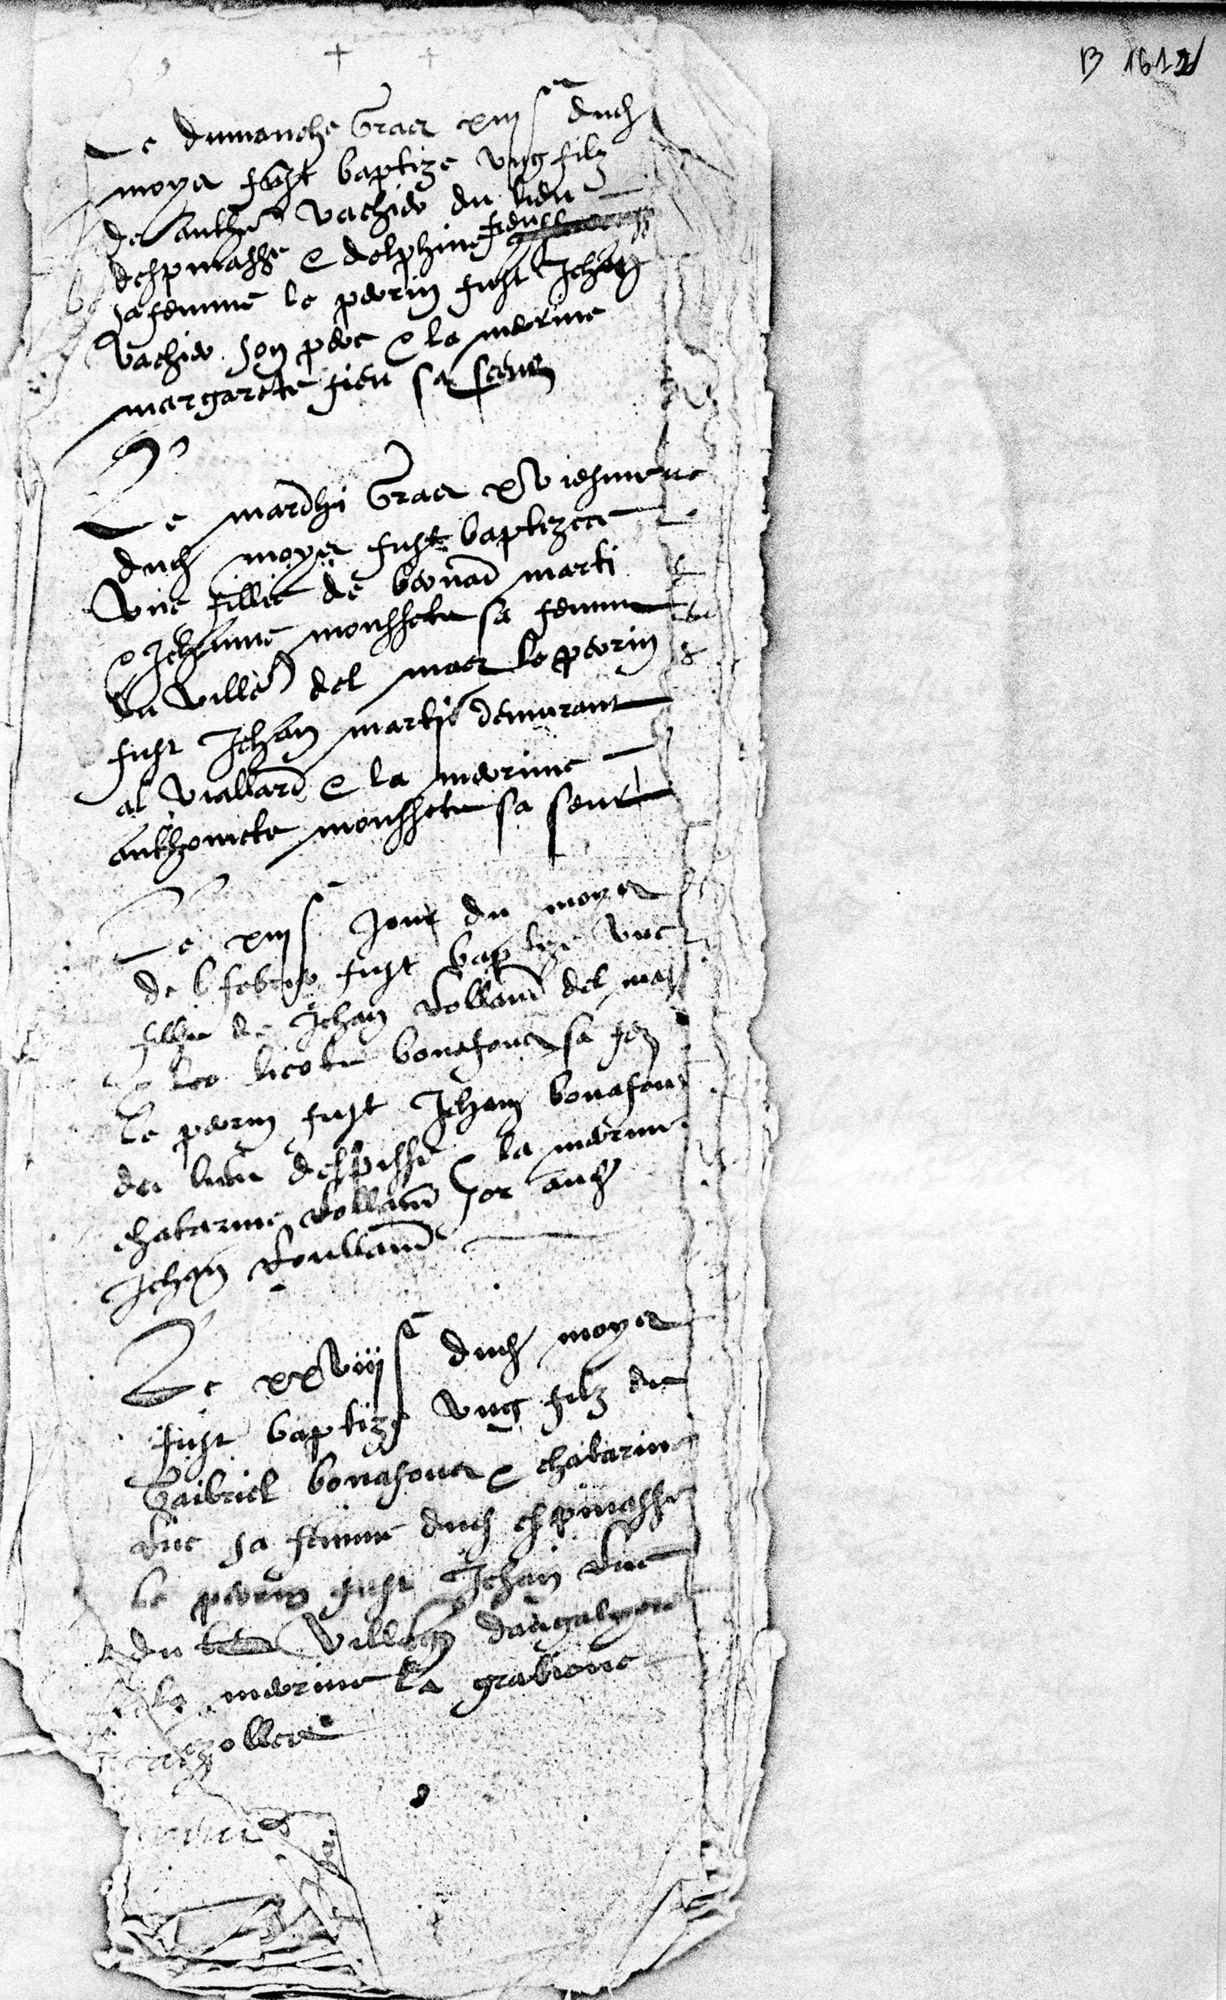 B 1612
Le dimanche Gras xiiij duch
moys fust baptize ung filz
de Anthe vachier du lieu
despinasse e delphine fieu
sa femme le peyrin fust Jehan
vachier son pere e la meyrine
margarete fieu sa seur
Le mardhi Gras xviesme
duch moys fust baptizee
une fillie de bernard marti
e Jehanne moussete sa femme
du village del mas le peyrin
fust Jehan marti demurant
al viallard e la meyrine
anthoniete moussete sa seur
Le xiiij jour du moys
de febrier fust baptize une
fillie de Jehan Rolland del mas
e bonafous sa fe
le peyrin fust Jehan bonafous
du lieu despisse e la meyrine
chatarine Rolland sor auch
Jehan Roulland
Le xxviij duch moys
fust baptize ung filz de
Gaibriel bonafous e chatarine
sa femme duch espinasse
le peyrin fust Jehan
du village
e la meyrine la